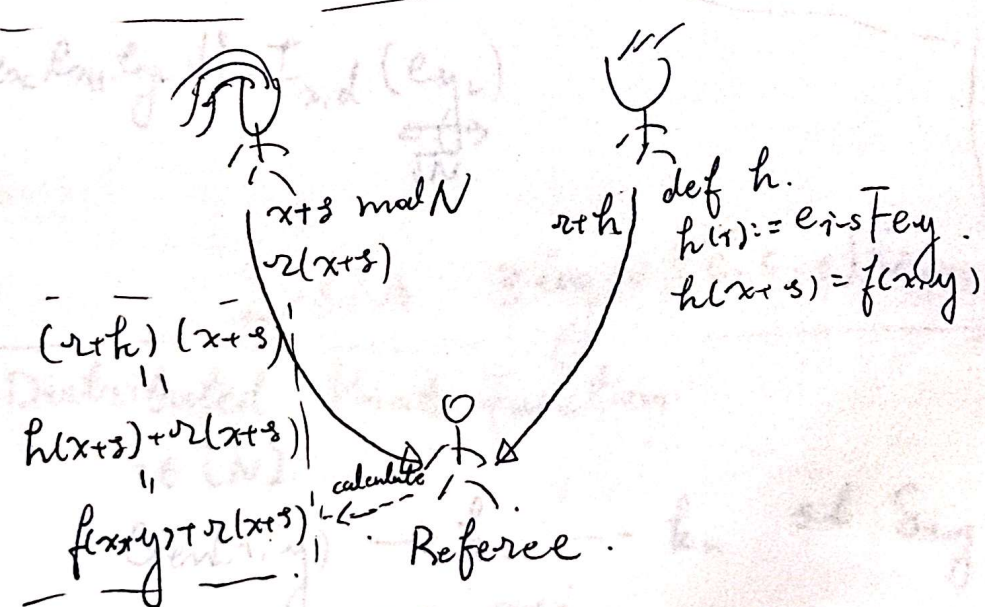 x+s mod N
r(x+s)
r+h
def h.
h(i) := e_{i-s} F e_y .
h(x+s) = f(x,y)
(r+h) (x+s)
"
h(x+s) + r(x+s)
"
f(x,y) + r(x+s)
calculate
Referee .